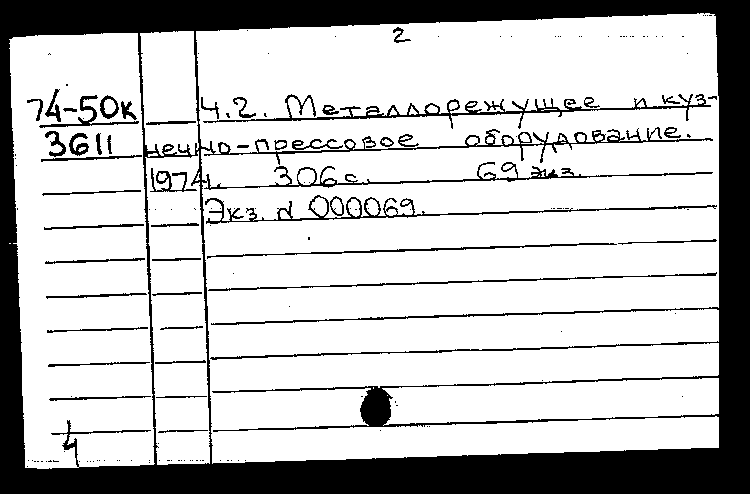 2
74-50к Ч.2. Металлорежущее и куз-
3611 нечно-прессовое оборудование.
1974г. 306с. 69 экз.
Экз. N 000069.
4